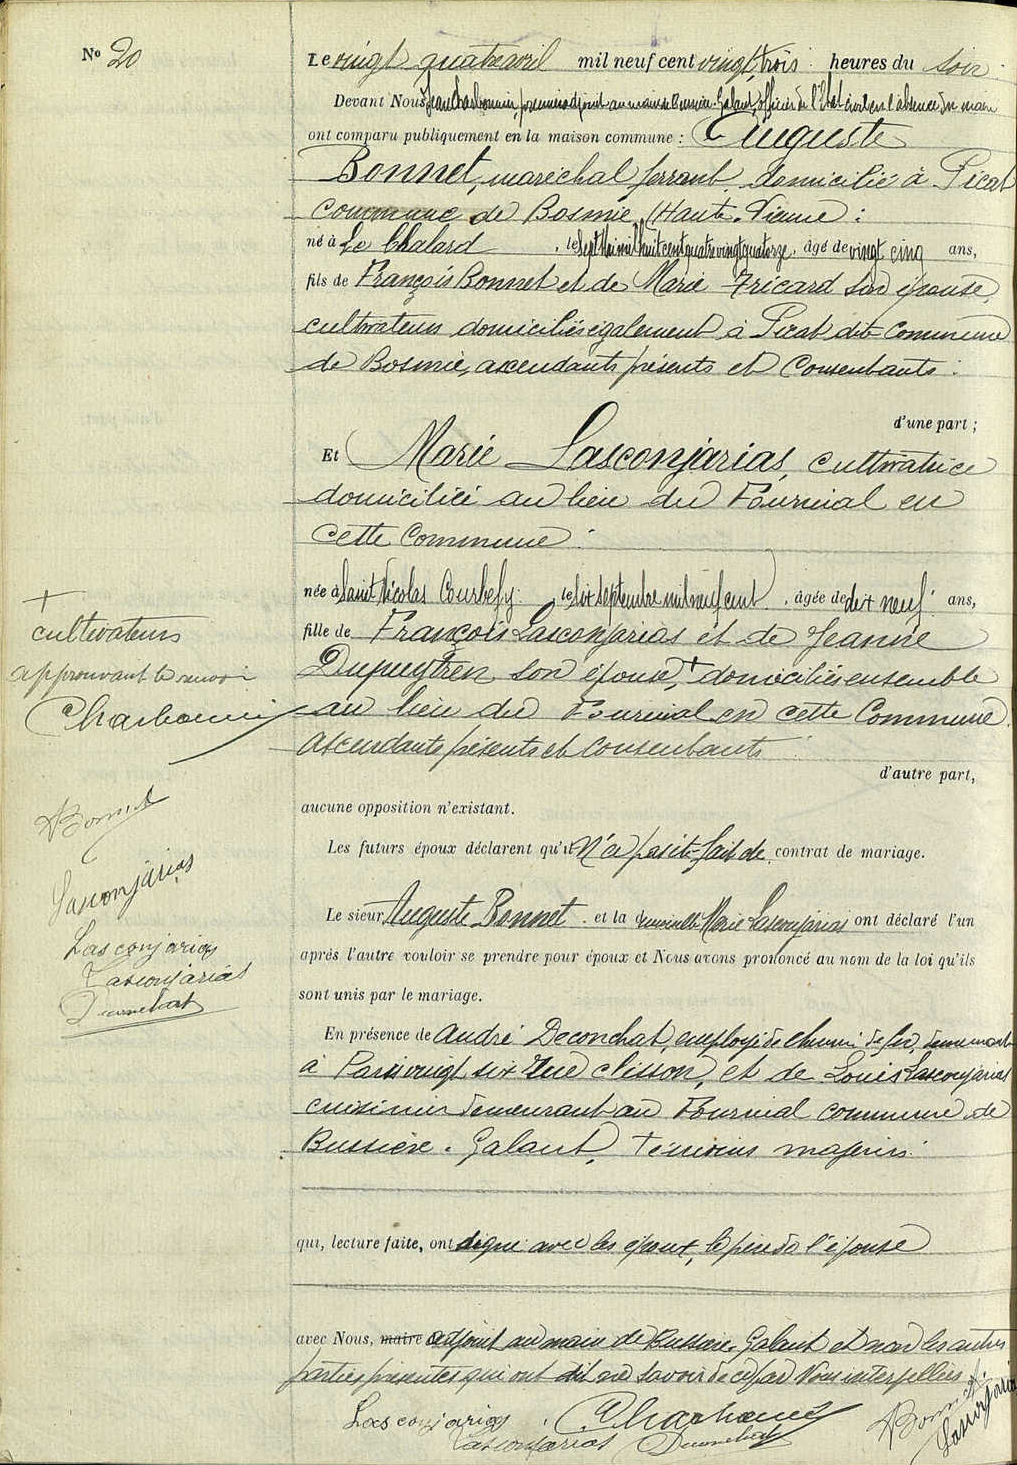 N° 20
Le vingt quatre avril mil neuf cent vingt, trois heures du soir
Devant Nous Jean Charbonnier, premier adjoint au maire de Bussière-Galant, officier de l'Etat civil en l'absence du maire
ont comparu publiquement en la maison commune : Auguste
Bonnet, maréchal ferrant, domicilié à Picat
commune de Bosmie (Haute-Vienne :
né à Le Chalard, le sept Mai mil huit cent quatre vingt quatorze, âgé de vingt cinq ans,
fils de François Bonnet et de Marie Fricard son épouse,
cultivateurs domiciliés également à Picat dite commune
de Bosmie, ascendants présents et Consentants :
d'une part ;
Et Marie Lasconjarias, cultivatrice
domiciliée au lieu du Fournial en
cette Commune :
née à Saint Nicolas Courbefy le six septembre mil neuf cent, âgée de dix neuf ans,
fille de François Lasconjarias et de Jeanne
Dupuytren son épouse, + domiciliés ensemble
au lieu du Fournial en cette Commune,
ascendants présents et consentants
d'autre part,
+
cultivateurs
approuvant le renvoi
Charbonnier
Bonnet
Lasconjarias
Lasconjarias
Lasconjarias
Deconchat
aucune opposition n'existant.
Les futurs époux déclarent qu'il N'a pas été fait de contrat de mariage.
Le sieur Auguste Bonnet et la demoiselle Marie Lasconjarias ont déclaré l'un
après l'autre vouloir se prendre pour époux et Nous avons prononcé au nom de la loi qu'ils
sont unis par le mariage.
En présence de André Deconchat, employé de chemin de fer, demeurant
à Paris vingt six rue Clisson, et de Louis Lasconjarias
cuisinier demeurant au Fournial commune de
Bussière-Galant, témoins majeurs
qui, lecture faite, ont signé avec les époux, le père de l'épouse
avec Nous, maire adjoint au maire de Bussière-Galant et non les autres
parties présentes qui ont dit ne savoir de ce par Nous interpellées.
Lasconjarias Charbonnier Bonnet
Lasconjarias Deconchat Lasconjarias